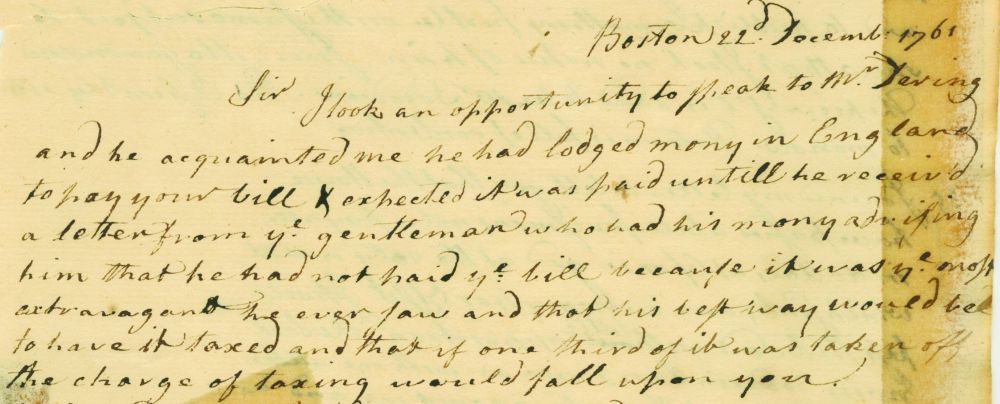 Boston 22d. Decemb. 1761
Sir I took an opportunity to speak to Mr. Dering
and he acquainted me he had lodged mony in England
to pay your bill & expected it was paid untill he receiv'd
a letter from ye. gentleman who had his mony advising
him that he had not paid ye. bill because it was ye. most
extravagant he ever saw and that his best way would bee
to have it taxed and that if one third of it was taken off
the charge of taxing would fall upon you.